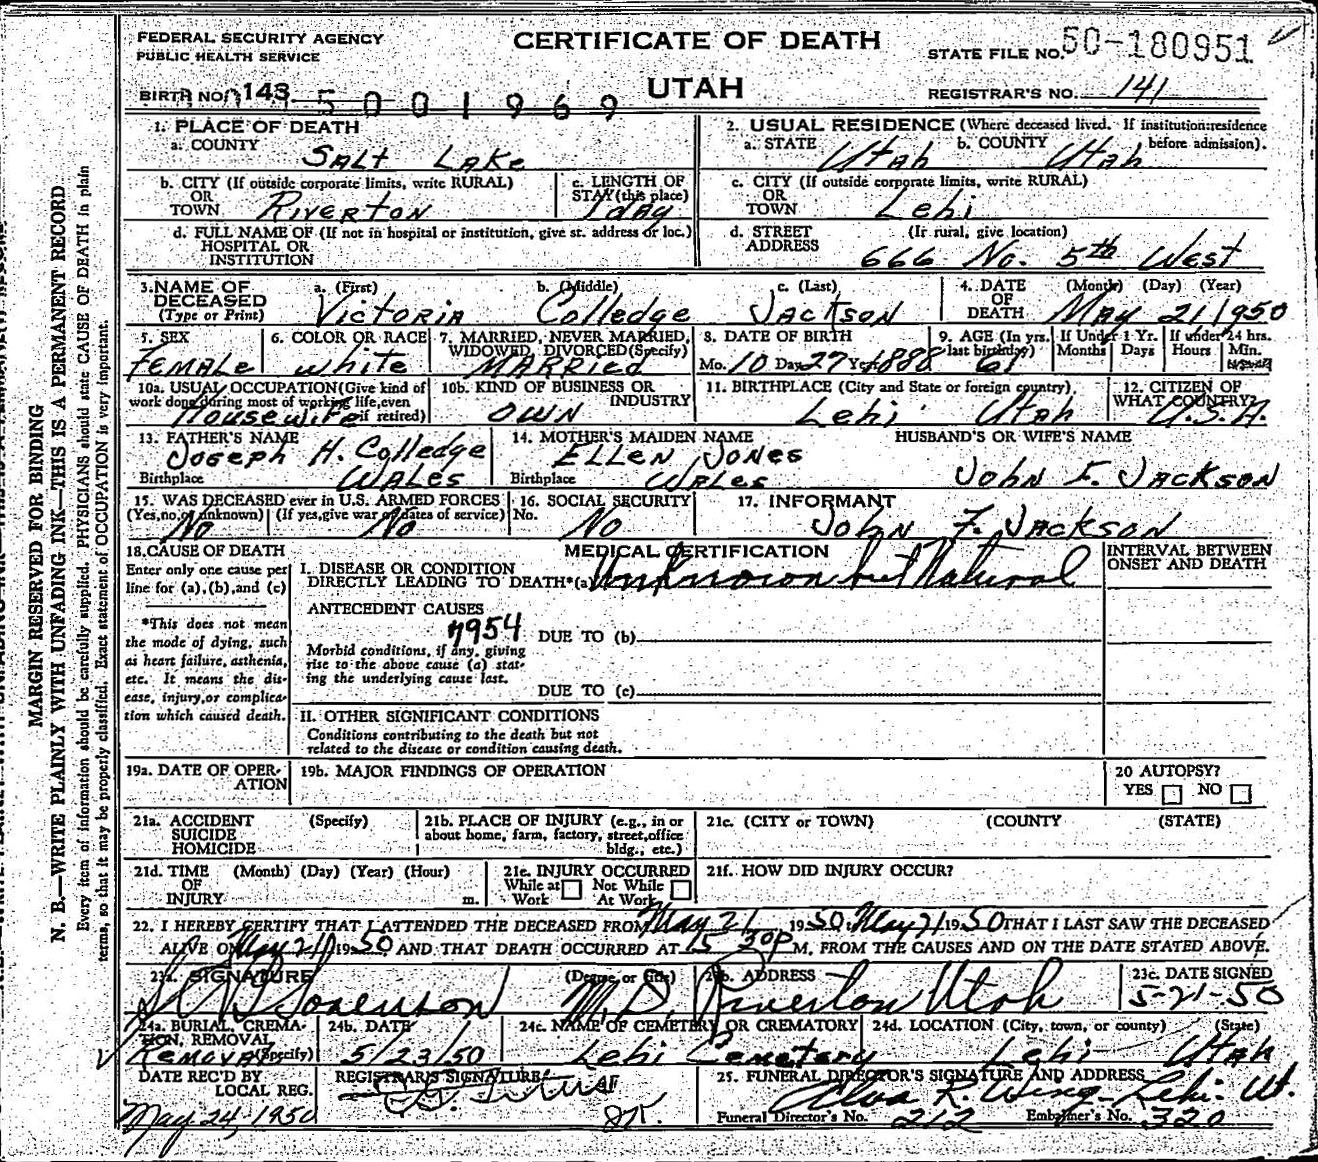 FEDERAL SECURITY AGENCY
PUBLIC HEALTH SERVICE
CERTIFICATE OF DEATH
UTAH
STATE FILE NO. 50-180951
BIRTH NO. 143 5001969
REGISTRAR'S NO. 141
MARGIN RESERVED FOR BINDING
N. B.—WRITE PLAINLY WITH UNFADING INK—THIS IS A PERMANENT RECORD
Every item of information should be carefully supplied. PHYSICIANS should state CAUSE OF DEATH in plain
terms, so that it may be properly classified. Exact statement of OCCUPATION is very important.
1. PLACE OF DEATH
a. COUNTY Salt Lake
2. USUAL RESIDENCE (Where deceased lived. If institution:residence before admission).
a. STATE Utah b. COUNTY Utah
b. CITY (If outside corporate limits, write RURAL)
OR
TOWN Riverton
c. LENGTH OF
STAY (this place)
1 day
c. CITY (If outside corporate limits, write RURAL)
OR
TOWN Lehi
d. FULL NAME OF (If not in hospital or institution, give st. address or loc.)
HOSPITAL OR
INSTITUTION
d. STREET (If rural, give location)
ADDRESS 666 No. 5th West
3. NAME OF
DECEASED
(Type or Print)
a. (First) b. (Middle) c. (Last)
Victoria Colledge Jackson
4. DATE (Month) (Day) (Year)
OF
DEATH May 21 1950
5. SEX
Female
6. COLOR OR RACE
White
7. MARRIED, NEVER MARRIED,
WIDOWED, DIVORCED (Specify)
Married
8. DATE OF BIRTH
Mo. 10 Day 27 Yr. 1888
9. AGE (In yrs. last birthday)
61
If Under 1 Yr.
Months Days
If under 24 hrs.
Hours Min.
10a. USUAL OCCUPATION (Give kind of
work done during most of working life, even
if retired)
Housewife
10b. KIND OF BUSINESS OR
INDUSTRY
OWN
11. BIRTHPLACE (City and State or foreign country)
Lehi Utah
12. CITIZEN OF
WHAT COUNTRY?
U.S.A.
13. FATHER'S NAME
Joseph H. Colledge
Birthplace Wales
14. MOTHER'S MAIDEN NAME
Ellen Jones
Birthplace Wales
HUSBAND'S OR WIFE'S NAME
John F. Jackson
15. WAS DECEASED ever in U.S. ARMED FORCES
(Yes, no, or unknown) (If yes, give war or dates of service)
No No
16. SOCIAL SECURITY
No. No
17. INFORMANT
John F. Jackson
18. CAUSE OF DEATH
Enter only one cause per
line for (a), (b), and (c)
*This does not mean
the mode of dying, such
as heart failure, asthenia,
etc. It means the dis-
ease, injury, or complica-
tion which caused death.
MEDICAL CERTIFICATION
I. DISEASE OR CONDITION
DIRECTLY LEADING TO DEATH*(a) Unknown but Natural
INTERVAL BETWEEN
ONSET AND DEATH
ANTECEDENT CAUSES
7954
DUE TO (b)
Morbid conditions, if any, giving
rise to the above cause (a) stat-
ing the underlying cause last.
DUE TO (c)
II. OTHER SIGNIFICANT CONDITIONS
Conditions contributing to the death but not
related to the disease or condition causing death.
19a. DATE OF OPER-
ATION
19b. MAJOR FINDINGS OF OPERATION
20 AUTOPSY?
YES NO
21a. ACCIDENT (Specify)
SUICIDE
HOMICIDE
21b. PLACE OF INJURY (e.g., in or
about home, farm, factory, street, office
bldg., etc.)
21c. (CITY or TOWN) (COUNTY) (STATE)
21d. TIME (Month) (Day) (Year) (Hour)
OF
INJURY m.
21e. INJURY OCCURRED
While at Work Not While At Work
21f. HOW DID INJURY OCCUR?
22. I HEREBY CERTIFY THAT I ATTENDED THE DECEASED FROM May 21 1950 May 21 1950 THAT I LAST SAW THE DECEASED
ALIVE ON May 21 1950 AND THAT DEATH OCCURRED AT 15 30 P M. FROM THE CAUSES AND ON THE DATE STATED ABOVE.
23a. SIGNATURE (Degree or title)
Sorenson M.D.
23b. ADDRESS
Riverton Utah
23c. DATE SIGNED
5-21-50
24a. BURIAL, CREMA-
TION, REMOVAL
(Specify)
Removal
24b. DATE
5/23/50
24c. NAME OF CEMETERY OR CREMATORY
Lehi Cemetery
24d. LOCATION (City, town, or county) (State)
Lehi Utah
DATE REC'D BY
LOCAL REG.
May 24, 1950
REGISTRAR'S SIGNATURE
25. FUNERAL DIRECTOR'S SIGNATURE AND ADDRESS
Alva R. Wing - Lehi - Ut.
Funeral Director's No. 212 Embalmer's No. 320